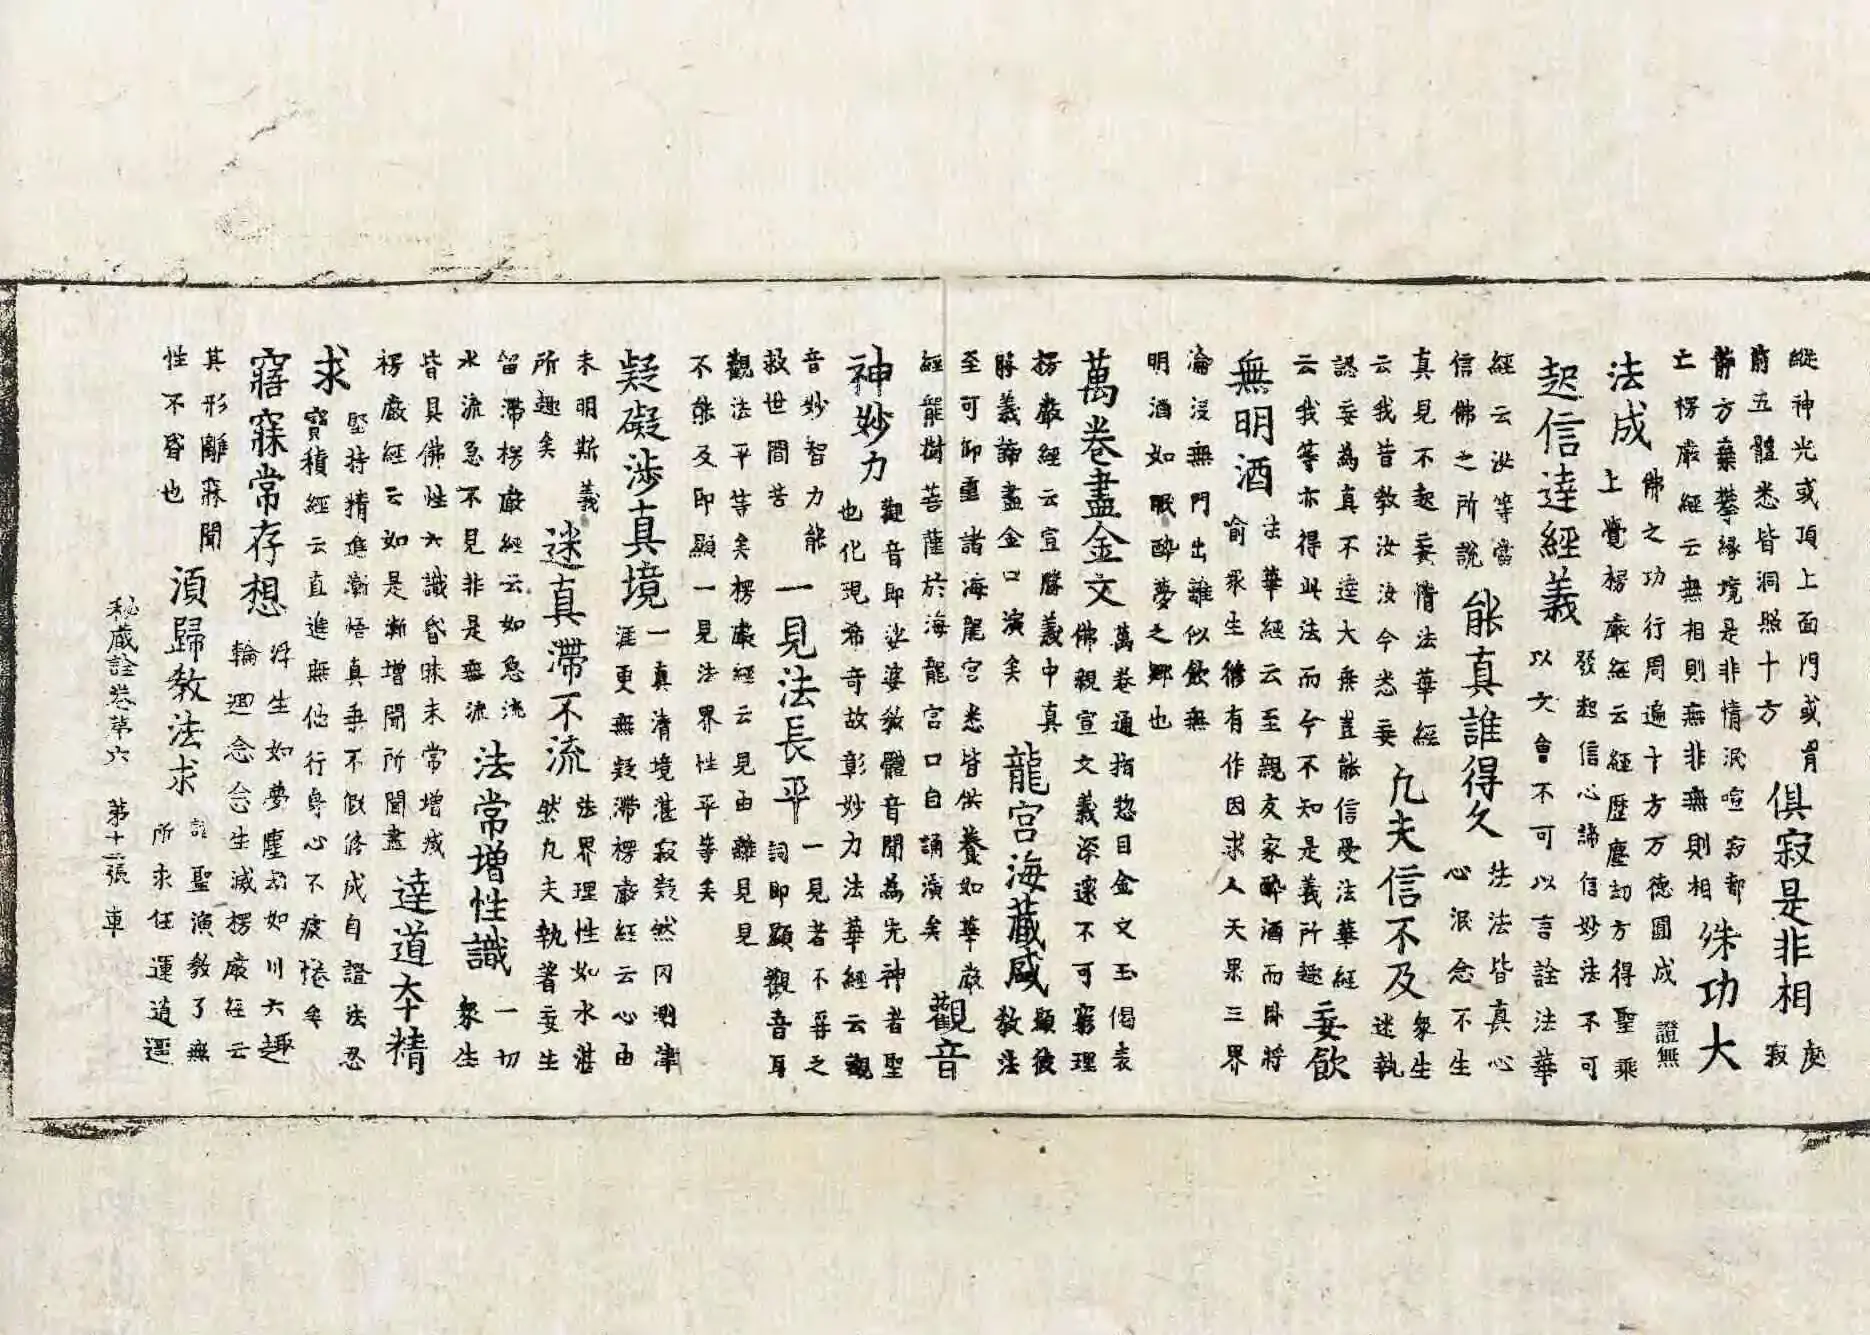 縱神光或頂上面門或胃
前五體悉皆洞照十方
俱寂是非相
處
寂
靜方棄攀緣境是非情泯喧寂都
亡楞嚴經云無相則無非無則相
殊功大
法成
佛之功行周遍十方万德圓成證無
上覺楞嚴經云經歷塵劫方得聖乘
起信達經義
發起信心諦信妙法不可
以文會不可以言詮法華
經云汝等當
信佛之所說
能真誰得久
法法皆真心
心泯念不生
真見不起妄情法華經
云我昔教汝汝今悉妄
凡夫信不及
衆生
迷執
認妄為真不達大乘豈能信受法華經
云我等亦得此法而今不知是義所趣
妄飲
無明酒
法華經云至親友家酔酒而卧將
喻衆生修有作因求人天果三界
淪没無門出離似飲無
明酒如眠酔夢之鄉也
萬卷盡金文
萬卷通指惣目金文玉偈表
佛親宣文義深遠不可窮理
楞嚴經云宣勝義中真
勝義諦盡金口演矣
龍宮海藏咸
顯彼
教法
至可仰重諸海龍宮悉皆供養如華嚴
經龍樹菩薩於海龍宮口自誦演矣
觀音
神妙力
觀音即娑婆教體音聞為先神者聖
也化現希奇故彰妙力法華經云觀
音妙智力能
救世間苦
一見法長平
一見者不尋之
詞即顯觀音耳
觀法平等矣楞嚴經云見由離見見
不能及即顯一見法界性平等矣
疑礙涉真境
一真清境湛寂凝然冈測津
涯更無疑滯楞嚴經云心由
未明斯義
所趣矣
迷真滯不流
法界理性如水湛
然凡夫執著妄生
留滯楞嚴經云如急流
水流急不見非是無流
法常增性識
一切
衆生
皆具佛性六識昏昧未常增減
楞嚴經云如是漸增聞所聞盡
達道夲精
求
堅持精進漸悟真乘不假修成自證法忍
寶積經云直進無他行身心不疲惓矣
寤寐常存想
浮生如夢塵劫如川六趣
輪迴念念生滅楞嚴經云
其形離寐聞
性不昏也
須歸教法求
詮聖演教了無
所求任運逍遥
秘藏詮卷第六 第十二張 車